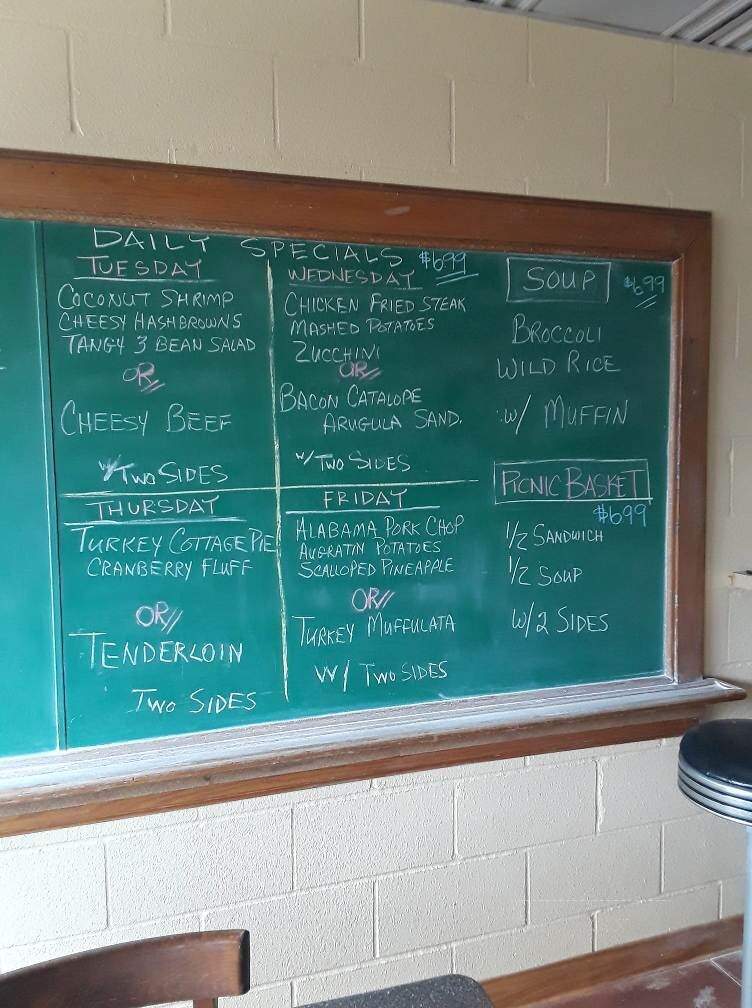 DAILY SPECIALS $6.99
TUESDAY
COCONUT SHRIMP
CHEESY HASHBROWNS
TANGY 3 BEAN SALAD
OR
CHEESY BEEF
W/ TWO SIDES
WEDNESDAY
CHICKEN FRIED STEAK
MASHED POTATOES
ZUCCHINI
OR
BACON CATALOPE
ARUGULA SAND.
W/ TWO SIDES
THURSDAY
TURKEY COTTAGE PIE
CRANBERRY FLUFF
OR
TENDERLOIN
TWO SIDES
FRIDAY
ALABAMA PORK CHOP
AUGRATIN POTATOES
SCALLOPED PINEAPPLE
OR
TURKEY MUFFULATA
W/ TWO SIDES
SOUP $6.99
BROCCOLI
WILD RICE
W/ MUFFIN
PICNIC BASKET
$6.99
1/2 SANDWICH
1/2 SOUP
W/2 SIDES